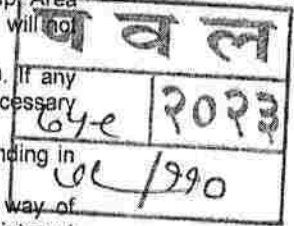 Area
will not
प व ल
If any
cessary
२०२३
nding in
/११०
way of